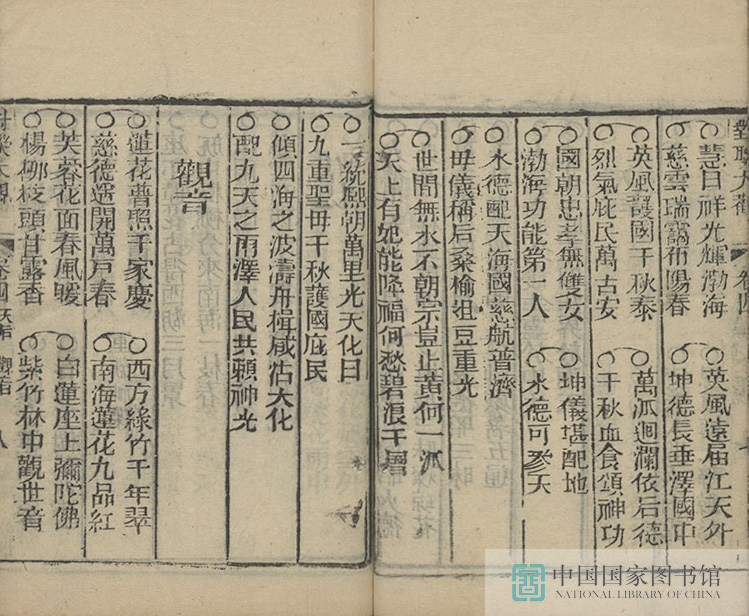 對聯大觀 卷四
慧日祥光輝渤海 英風遠届江天外
慈雲瑞靄布陽春 坤德長垂澤國中
英風護國千秋泰 萬派迴瀾依后德
烈氣庇民萬古安 千秋血食頌神功
國朝忠孝無雙女 坤儀堪配地
渤海功能第一人 水德可參天
水德配天海國慈航普濟
母儀稱后桑榆俎豆重光
世間無水不朝宗豈止黃河一派
天上有妃能降福何愁碧浪千層
一統熙朝萬里光天化日
九重聖母千秋護國庇民
傾四海之波濤舟楫咸沾大化
配九天之雨澤人民共賴神光
觀音
蓮花普照千家慶 西方綠竹千年翠
慈德遥開萬戶春 南海蓮花九品紅
芙蓉花面春風暖 白蓮座上彌陀佛
楊柳枝頭甘露香 紫竹林中觀世音
對聯大觀 卷四 天后 觀音 八
中国国家图书馆
NATIONAL LIBRARY OF CHINA